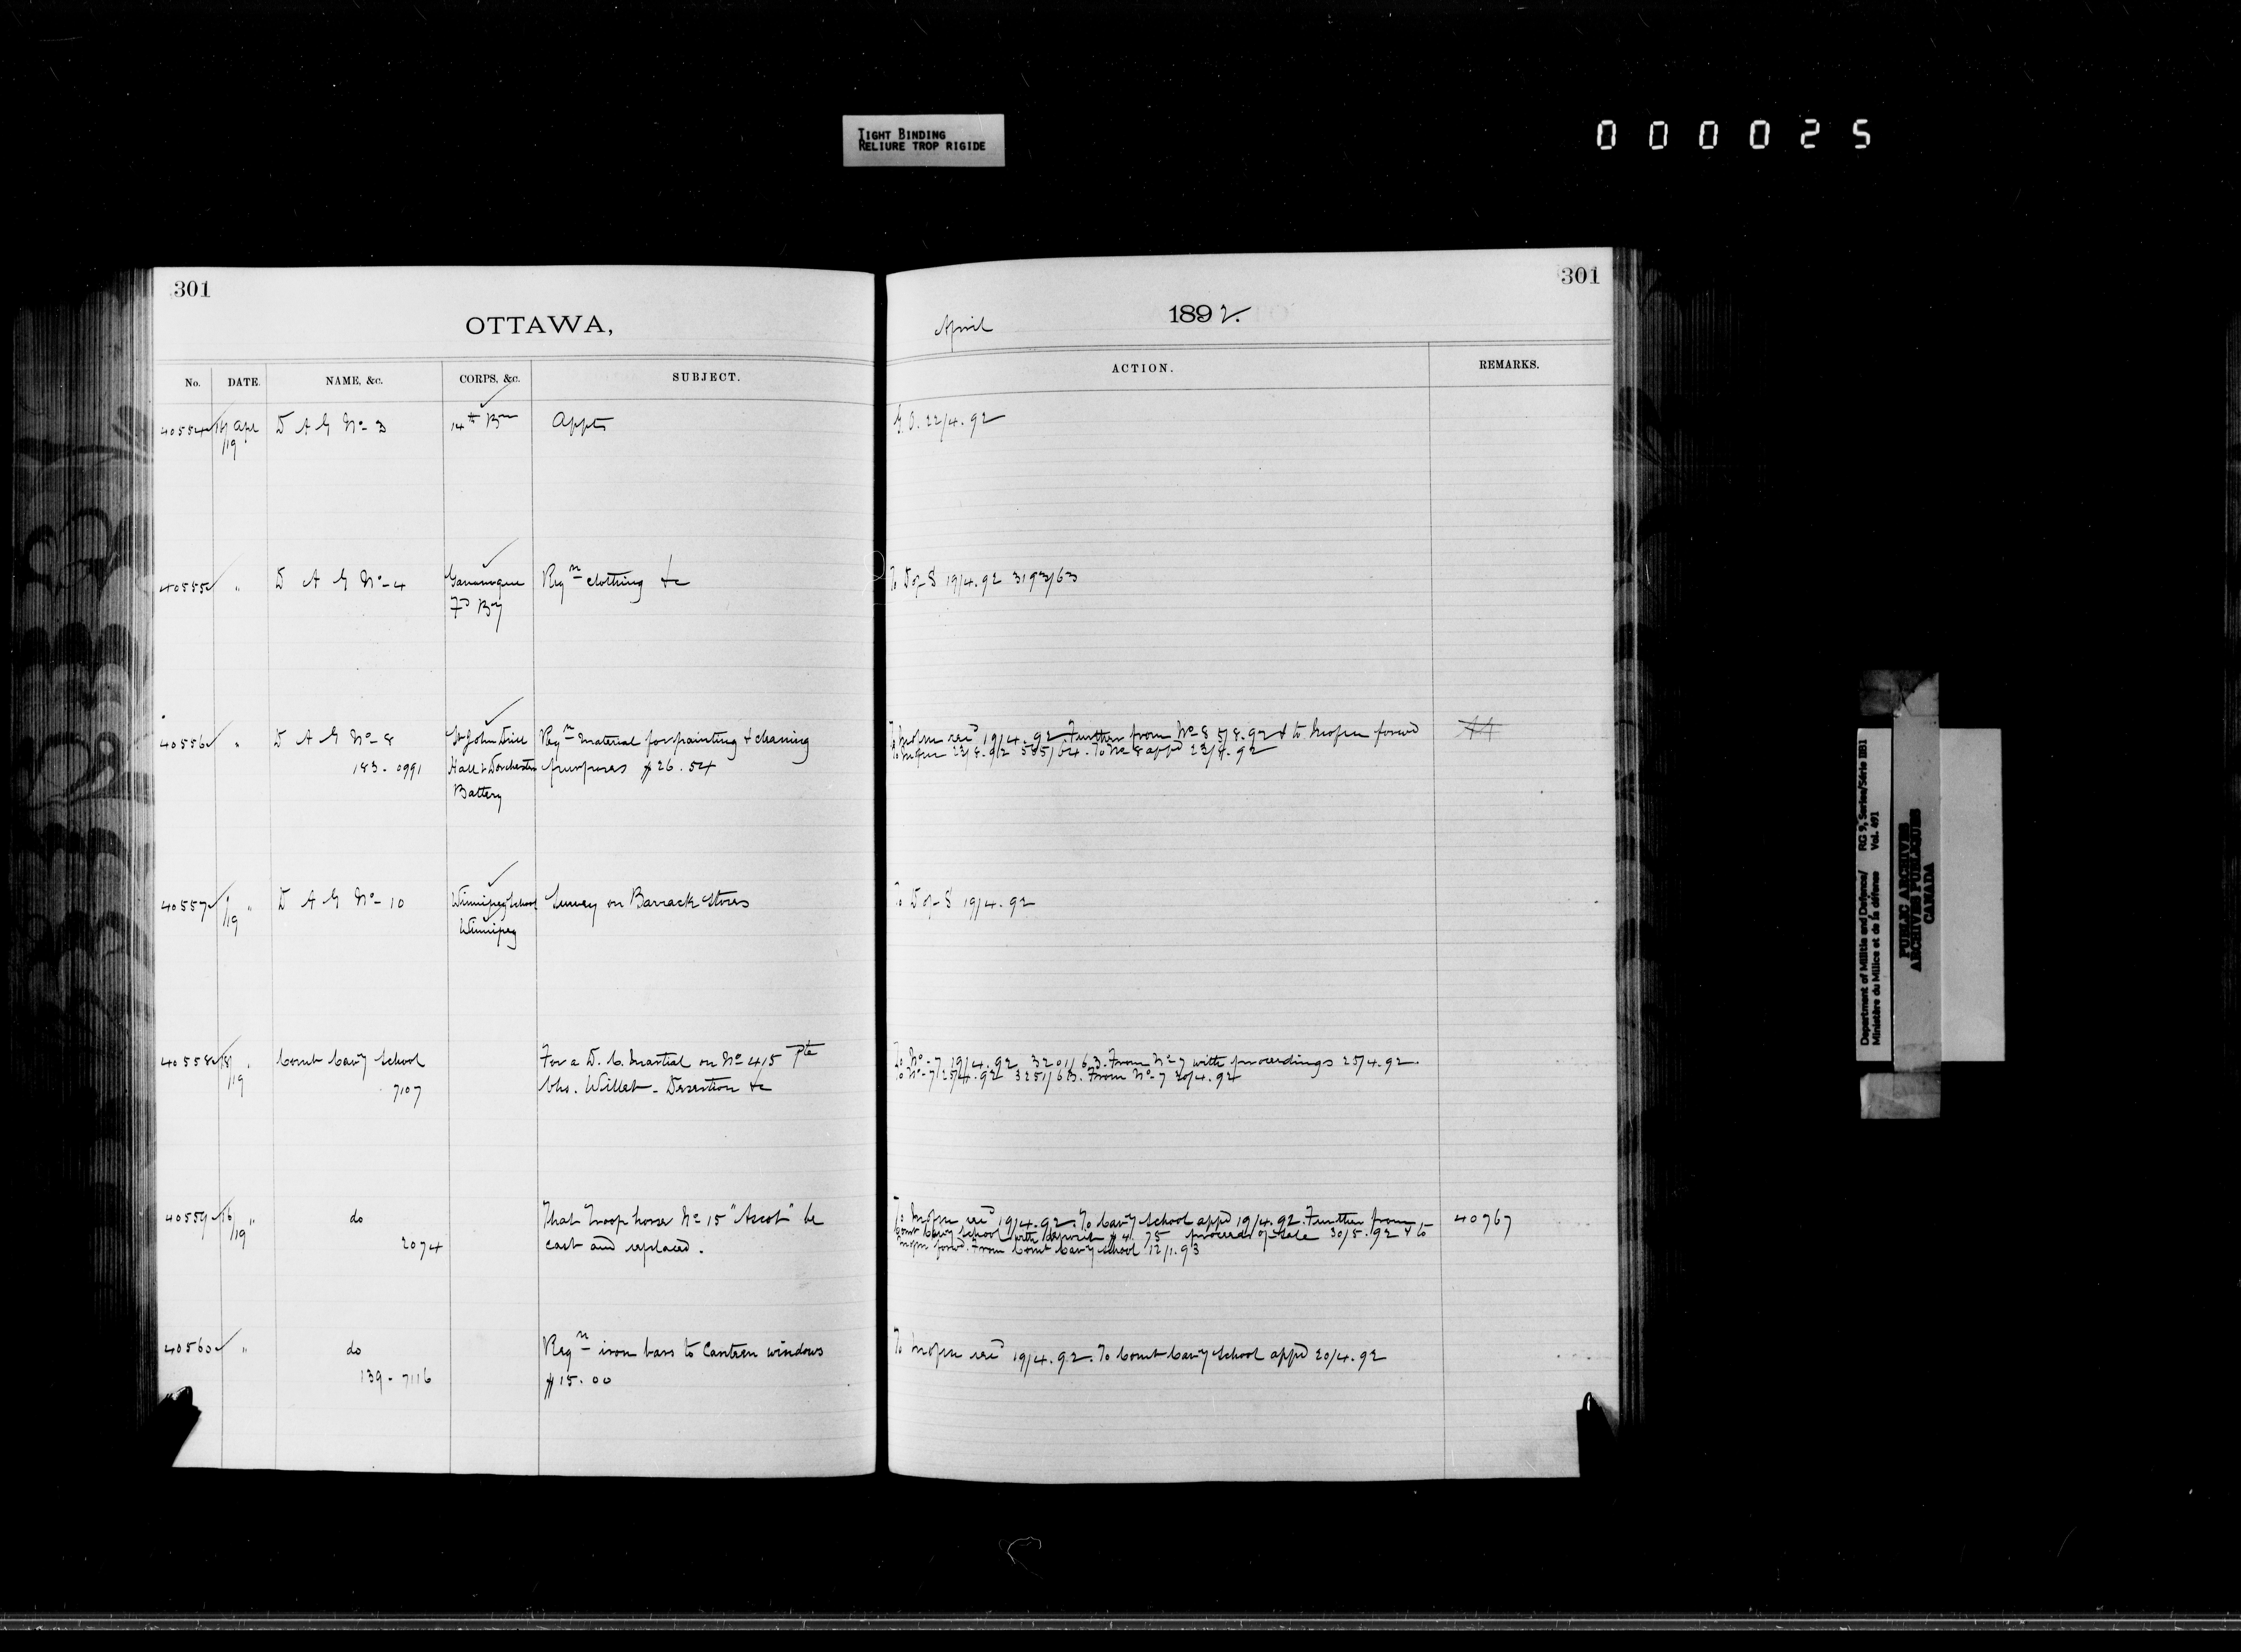 TIGHT BINDING
RELIURE TROP RIGIDE
000025
301
OTTAWA,
No. DATE. NAME, &C. CORPS, &C. SUBJECT.
40554 16/19 Apl D A G No 3 14th Bn Appts
40555 " D A G No 4 Gananoque Reqn clothing &c
Fd By
40556 " D A G No 8 St John Drill Reqn material for painting & cleaning
183 - 0991 Hall & Dorchester purposes $26.54
Battery
40557 /19 " D A G No 10 Winnipeg School Survey on Barrack Stores
Winnipeg
40558 18/19 " Comt Cavy School For a D. C. Martial on No 415 Pte
7107 Chs. Willet - Desertion &c
40559 16/19 " do That Troop horse No 15 "Ascot" be
2074 cast and replaced.
40560 " do Reqn iron bars to Canteen windows
139 - 7116 $15.00
301
April 1892.
ACTION. REMARKS.
G.O. 22/4.92
To D of S 19/4.92 3193/63
To M of M recd 19/4.92 Further from No 8 5/8.92 & to M of M forwd
23/8.92 To No 8 appd
To D of S 19/4.92
To No 7 19/4.92 3201/63. From No 7 with proceedings 25/4.92.
To No 7 25/4.92 3251/63. From No 7
To recd 19/4.92. To Cavy School appd 19/4.92. Further from 40767
Comt Cavy School with deposit $41.75 proceeds of sale 30/5.92 & to
forwd. From Comt Cavy School 12/1.93
To recd 19/4.92. To Comt Cavy School appd 20/4.92
Department of Militia and Defence/ RG 9, Series/Série IIB1
Ministère du Milice et de la défense Vol. 491
PUBLIC ARCHIVES
ARCHIVES PUBLIQUES
CANADA